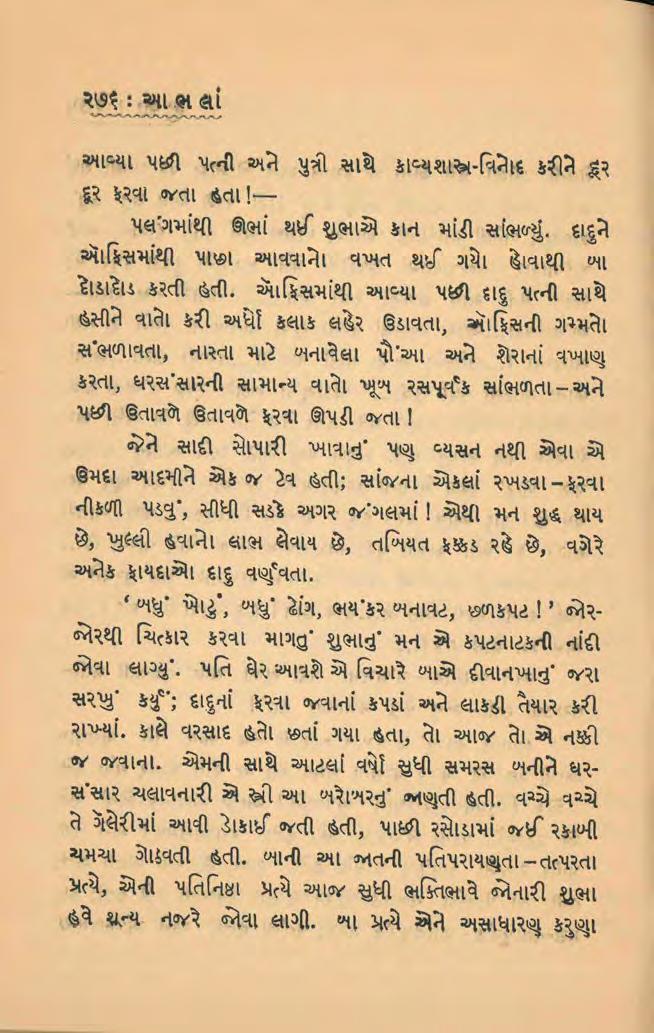 ૨૭૬ : આ ભ લાં
આવ્યા પછી પત્ની અને પુત્રી સાથે કાવ્યશાસ્ત્ર-વિનોદ કરીને દૂર
દૂર ફરવા જતા હતા !—
પલંગમાંથી ઊભાં થઈ શુભાએ કાન માંડી સાંભળ્યું. દાદુને
ઑફિસમાંથી પાછા આવવાનો વખત થઈ ગયો હોવાથી બા
દોડાદોડ કરતી હતી. ઑફિસમાંથી આવ્યા પછી દાદુ પત્ની સાથે
હસીને વાતો કરી અર્ધો કલાક લહેર ઉડાવતા, ઑફિસની ગમ્મતો
સંભળાવતા, નાસ્તા માટે બનાવેલા પૌંઆ અને શેરાનાં વખાણ
કરતા, ઘરસંસારની સામાન્ય વાતો ખૂબ રસપૂર્વક સાંભળતા – અને
પછી ઉતાવળે ઉતાવળે ફરવા ઊપડી જતા !
જેને સાદી સોપારી ખાવાનું પણ વ્યસન નથી એવા એ
ઉમદા આદમીને એક જ ટેવ હતી; સાંજના એકલાં રખડવા – ફરવા
નીકળી પડવું, સીધી સડકે અગર જંગલમાં ! એથી મન શુદ્ધ થાય
છે, ખુલ્લી હવાનો લાભ લેવાય છે, તબિયત ફક્કડ રહે છે, વગેરે
અનેક ફાયદાઓ દાદુ વર્ણવતા.
‘ બધું ખોટું, બધું ઢોંગ, ભયંકર બનાવટ, છળકપટ ! ’ જોર-
જોરથી ચિત્કાર કરવા માગતું શુભાનું મન એ કપટનાટકની નાંદી
જોવા લાગ્યું. પતિ ઘેર આવશે એ વિચારે બાએ દીવાનખાનું જરા
સરખું કર્યું; દાદુનાં ફરવા જવાનાં કપડાં અને લાકડી તૈયાર કરી
રાખ્યાં. કાલે વરસાદ હતો છતાં ગયા હતા, તો આજ તો એ નક્કી
જ જવાના. એમની સાથે આટલાં વર્ષો સુધી સમરસ બનીને ઘર-
સંસાર ચલાવનારી એ સ્ત્રી આ બરોબરનું જાણતી હતી. વચ્ચે વચ્ચે
તે ગૅલેરીમાં આવી ડોકાઈ જતી હતી, પાછી રસોડામાં જઈ રકાબી
ચમચા ગોઠવતી હતી. બાની આ જાતની પતિપરાયણતા – તત્પરતા
પ્રત્યે, એની પતિનિષ્ઠા પ્રત્યે આજ સુધી ભક્તિભાવે જોનારી શુભા
હવે શૂન્ય નજરે જોવા લાગી. બા પ્રત્યે એને અસાધારણ કરુણા